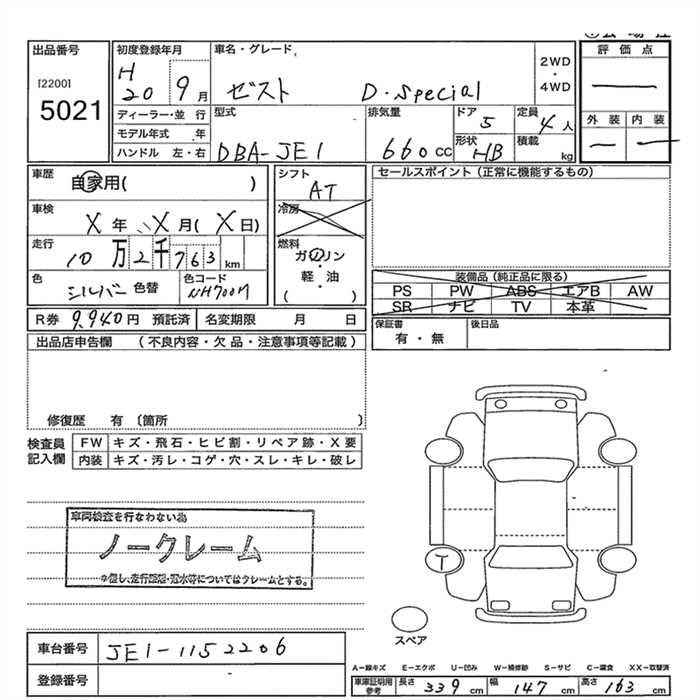 出品番号
[2200]
5021
初度登録年月
H
20 9月
車名・グレード
ゼスト D・special
2WD
・
4WD
評価点
—
外装 内装
— —
ディーラー・並行
モデル年式 年
ハンドル 左・右
型式
DBA-JE1
排気量
660cc
ドア
5
形状
HB
定員
4人
積載
kg
車歴
自家用( )
車検
X年 X月(X日)
走行
10万2千763km
色
シルバー 色替
色コード
NH700M
シフト
AT
冷房
燃料
ガソリン
・
軽・油
( )
セールスポイント(正常に機能するもの)
装備品(純正品に限る)
PS PW ABS エアB AW
SR ナビ TV 本革
保証書
有・無
後日品
R券 9,940円 預託済 名変期限 月 日
出品店申告欄 (不良内容・欠品・注意事項等記載)
修復歴 有 〔箇所 〕
検査員
記入欄
FW キズ・飛石・ヒビ割・リペア跡・X要
内装 キズ・汚レ・コゲ・穴・スレ・キレ・破レ
車両検査を行なわない為
ノークレーム
※但し、走行距離・冠水等についてはクレームとする。
T
スペア
車台番号 JE1-1152206
登録番号 -
A-線キズ E-エクボ U-凹み W-補修跡 S-サビ C-腐食 XX-取替済
車庫証明用
参考
長さ 339cm 幅 147cm 高さ 163cm